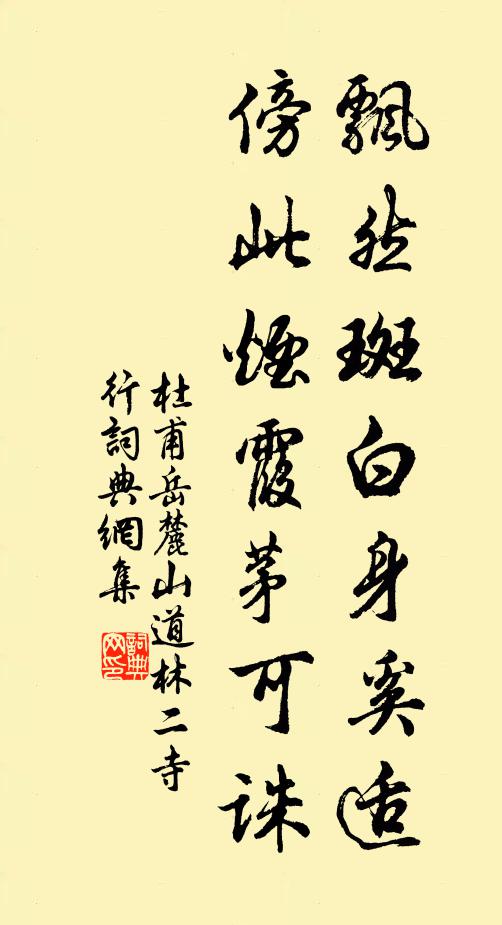 飄然斑白身奚适
傍此煙霞茅可誅
杜甫岳麓山道林二寺
行詞典網集
詞典网印